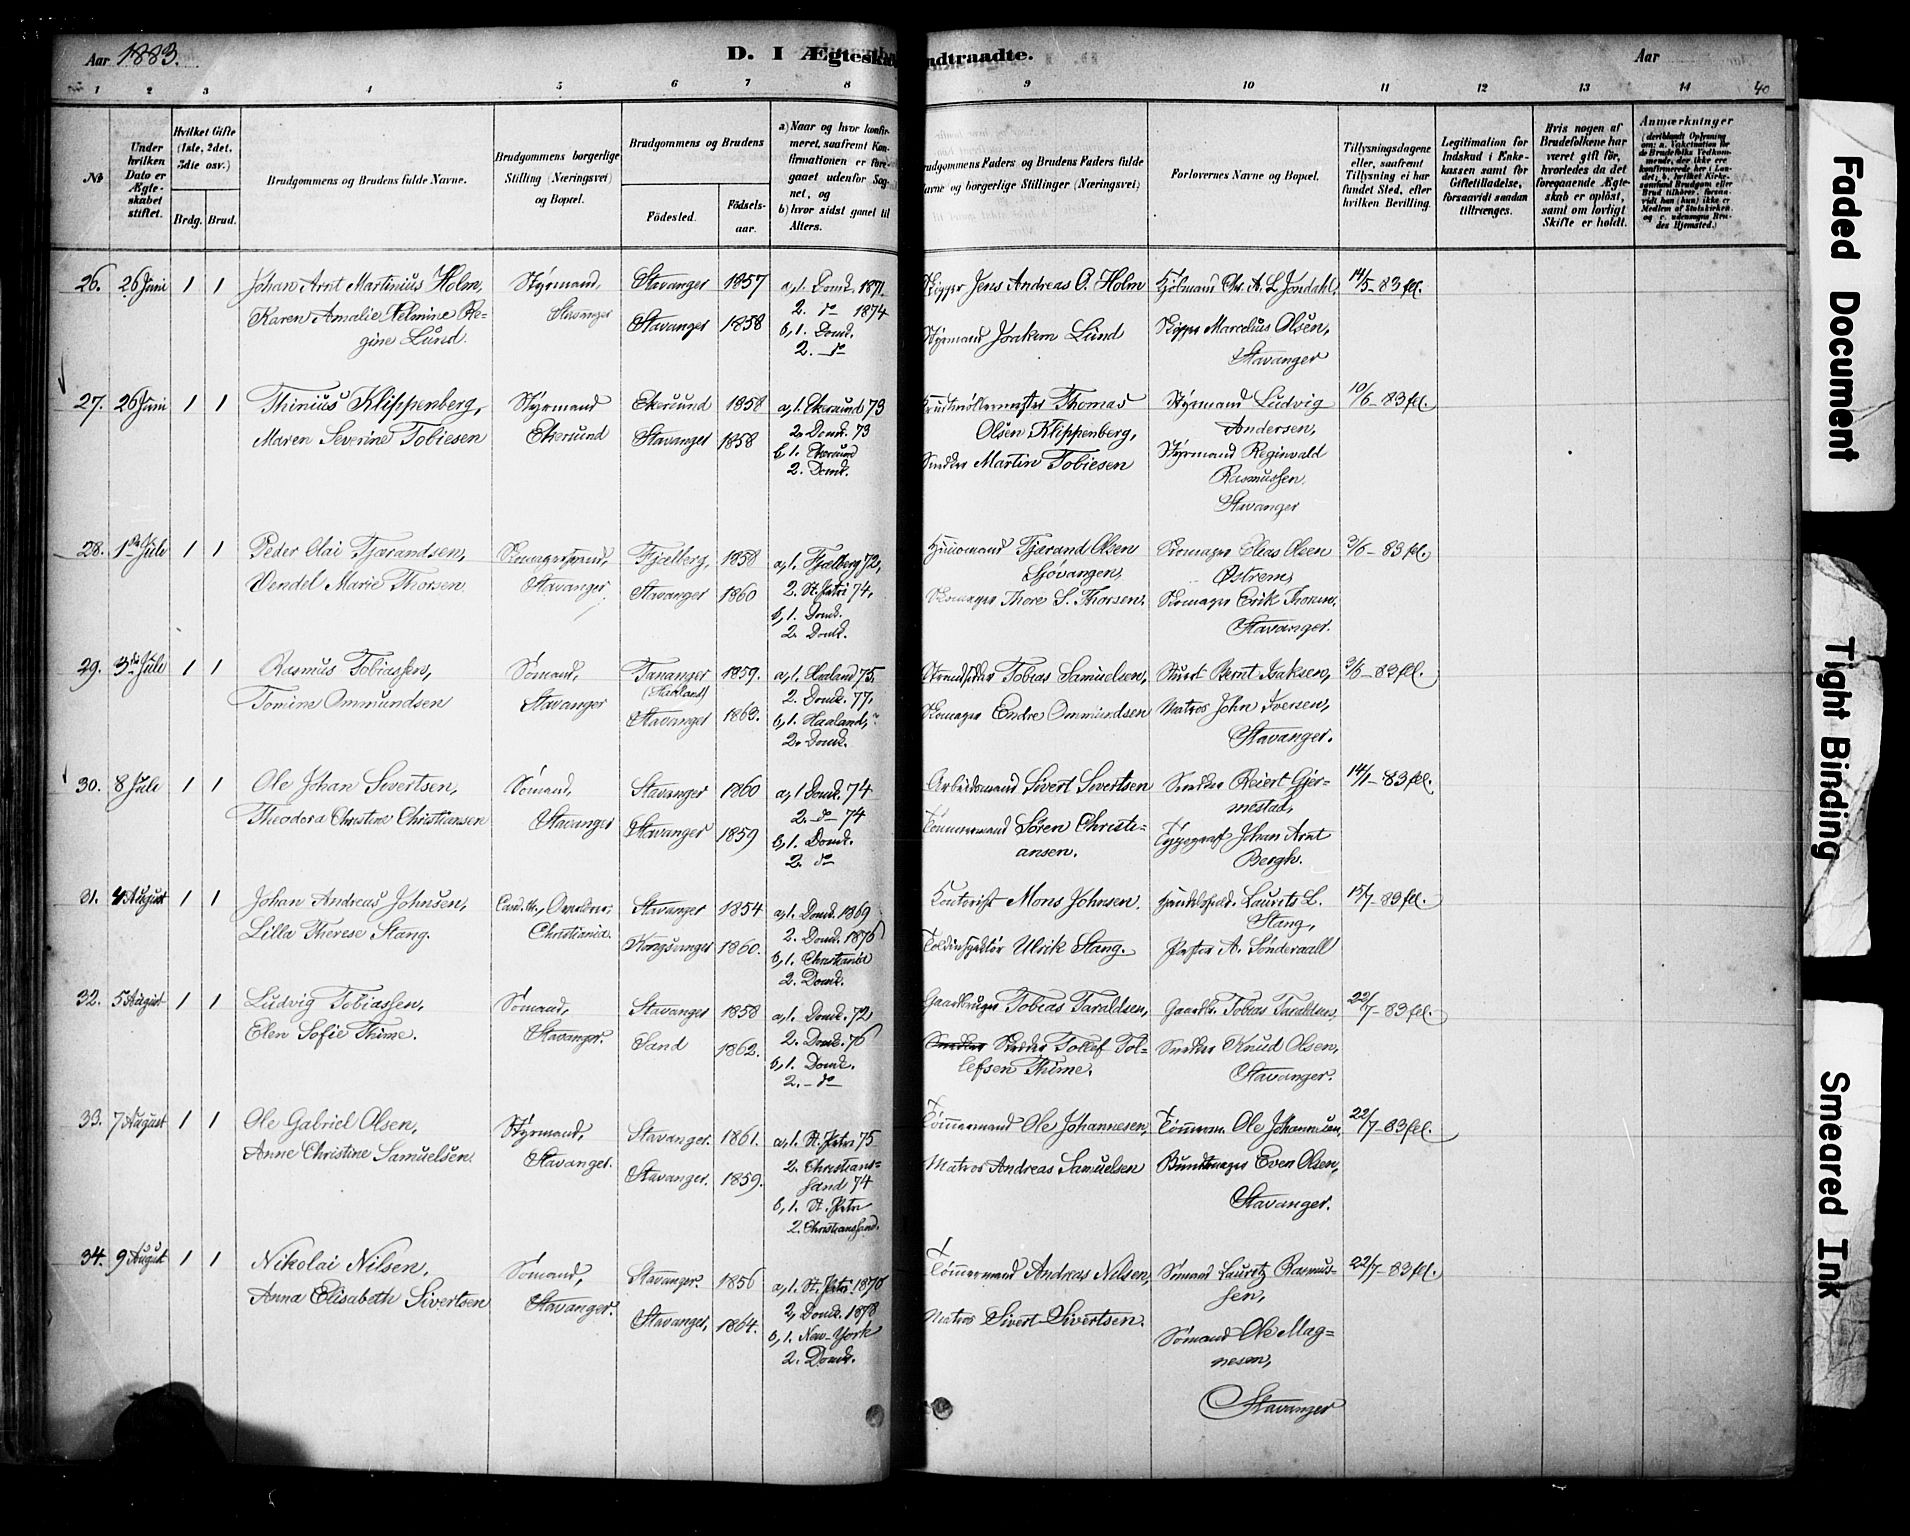 Aar 1883.
D. I Ægteska
ndtraadte.
Aar
1 2 3 4 5 6 7 8 9 10 11 12 13 14 40
No
Under hvilken Dato er Ægteskabet stiftet.
Hvilket Gifte (1ste, 2det, 3die osv.)
Brdg. Brud.
Brudgommens og Brudens fulde Navne.
Brudgommens borgerlige Stilling (Næringsvei) og Bopæl.
Brudgommens og Brudens
Fødested.
Fødselsaar.
a) Naar og hvor konfirmeret, saafremt Konfirmationen er foregaaet udenfor Sognet, og
b) hvor sidst gaaet til Alters.
udgommens Faders og Brudens Faders fulde
avne og borgerlige Stillinger (Næringsvei)
Forlovernes Navne og Bopæl.
Tillysningsdagene eller, saafremt Tillysning ei har fundet Sted, efter hvilken Bevilling.
Legitimation for Indskud i Enkekassen samt for Giftetilladelse, forsaavidt saadan tiltrænges.
Hvis nogen af Brudefolkene har været gift før, hvorledes da det foregaaende Ægteskab er opløst, samt om lovligt Skifte er holdt.
Anmærkninger
26. 26 Juni 1 1 Johan Arnt Martinius Holm, Styrmand, Stavanger 1857 a, 1. Domk. 1871. Skipper Jens Andreas O. Holm
Karen Amalie Helmine Regine Lund. Stavanger Stavanger 1858 2. do 1874 Styrmand Joakim Lund
b, 1. Domk.
2. do
Chr. A. L. Jondahl, 14/5-83 fl.
Skipper Marcelius Olsen,
Stavanger
27. 26 Juni 1 1 Thinius Klippenberg, Styrmand Ekersund 1858 a, 1. Ekersund 73 Thomas
Maren Severine Tobiesen Ekersund Stavanger 1858 2. Domk. 73 Olsen Klippenberg,
b 1. Ekersund
2. Domk.
Snedker Martin Tobiesen
Styrmand Ludvig 10/6-83 fl.
Andersen,
Styrmand Reginvald
Rasmussen.
Stavanger
28. 1ste Juli 1 1 Peder Olai Tjærandsen, Fjælberg, 1858 a, 1. Fjælberg 72, Tjærand Olsen
Vendel Marie Thorsen. Stavanger Stavanger 1860 2. St. Petri 74, Sjóvangen,
b, 1. Domk.
2. Domk.
Skomager Thore S. Thorsen.
Skomager Elias Olsen 3/6-83 fl.
Østrem,
Skomager Erik Thorsen,
Stavanger.
29. 3die Juli 1 1 Rasmus Tobiassen, Sømand, Tananger (Haaland) 1859. a, 1. Haaland 75. Strandsidder Tobias Samuelsen,
Tomine Ommundsen Stavanger Stavanger 1862. 2. Domk. 77,
b, 1. Haaland,
2. Domk.
Skomager Endre Ommundsen
Stuert Bernt Isaksen, 3/6-83 fl.
Matros John Iversen,
Stavanger.
30. 8 Juli 1 1 Ole Johan Sivertsen, Sømand, Stavanger 1860 a, 1 Domk. 74 Arbeidsmand Sivert Sivertsen
Theodora Christine Christiansen Stavanger Stavanger 1859 2. do 74
b, 1. Domk.
2. do
Tømmermand Søren Christiansen.
Snedker Reiert Gjermestad, 14/1-83 fl.
Typograf Johan Arnt
Bergh.
31. 4 August 1 1 Johan Andreas Johnsen, Cand. th., Stavanger 1854 a, 1. Domk. 1869 Kontorist Mons Johnsen.
Lilla Therese Stang. Christiania. Kongsvinger 1860. 2. Domk. 1876
b, 1. Christiania
2. Domk.
Toldinspektør Ulrik Stang.
Laurits L. 15/7-83 fl.
Stang,
Pastor A. Sønderaall
32. 5 August 1 1 Ludvig Tobiassen, Sømand, Stavanger 1858 a, 1. Domk. 72 Gaardbruger Tobias Taraldsen,
Elen Sofie Thime. Stavanger. Sand 1862. 2. Domk. 76
b, 1. Domk.
2. do
Tollef Tollefsen Thime.
Gaardbr. Tobias Taraldsen, 22/7-83 fl.
Snedker Knud Olsen,
Stavanger.
33. 7 August 1 1 Ole Gabriel Olsen, Styrmand, Stavanger. 1861. a, 1. St. Petri 75 Tømmermand Ole Johannesen,
Anne Christine Samuelsen. Stavanger. Stavanger. 1859. 2. Christianssand 74
b, 1. St. Petri
2. Christianssand.
Matros Andreas Samuelsen
Tømmerm. Ole Johannesen, 22/7-83 fl.
Bundtmager Even Olsen,
Stavanger.
34. 9 August 1 1 Nikolai Nilsen, Sømand, Stavanger. 1856 a, 1. St. Petri 1870 Tømmermand Andreas Nilsen,
Anna Elisabeth Sivertsen Stavanger. Stavanger, 1864. 2, Domk. 1878
b, 1. New-York
2. Domk.
Matros Sivert Sivertsen.
Sømand Lauretz Rasmussen, 22/7-83 fl.
Sømand Ole Magnesen,
Stavanger
Faded Document
Tight Binding
Smeared Ink